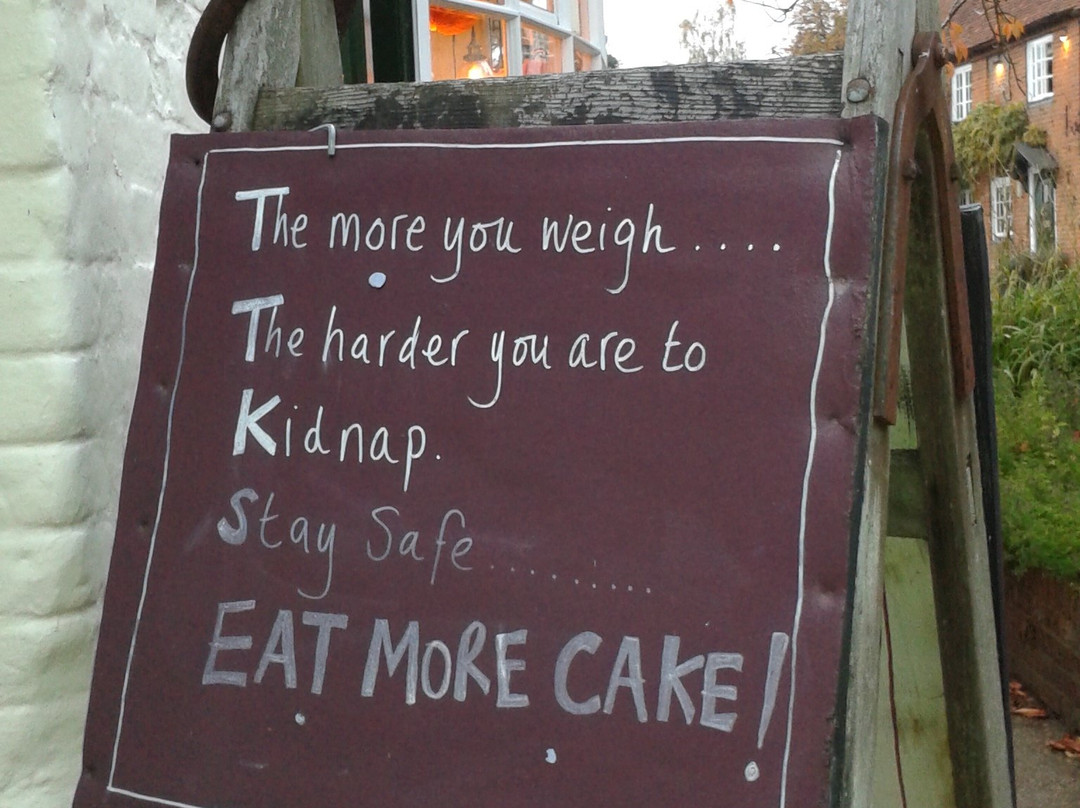 The more you weigh.....
The harder you are to
Kidnap.
Stay Safe..........
EAT MORE CAKE!